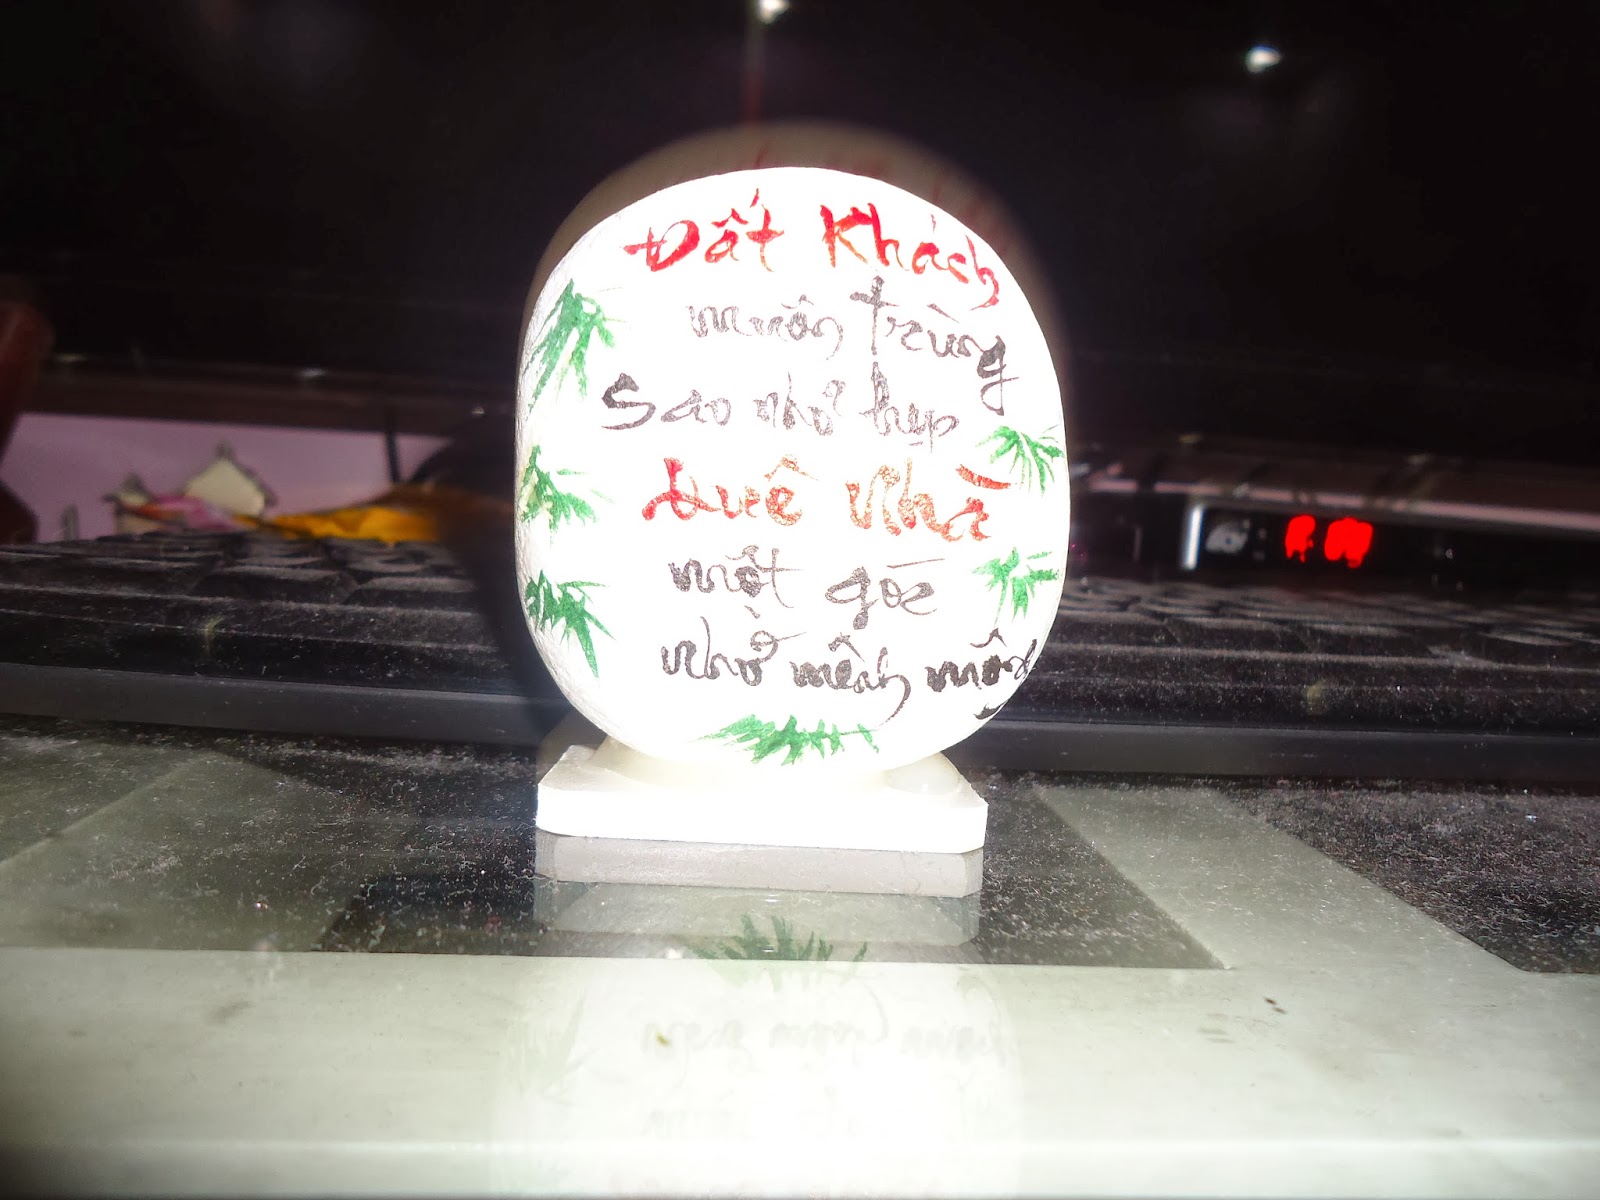 Đất Khách
muôn trùng
Sao nhỏ hẹp
Quê Nhà
một góc
nhớ mênh mông